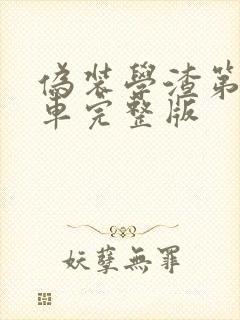 偽裝學渣第
車完整版
妖孽無罪